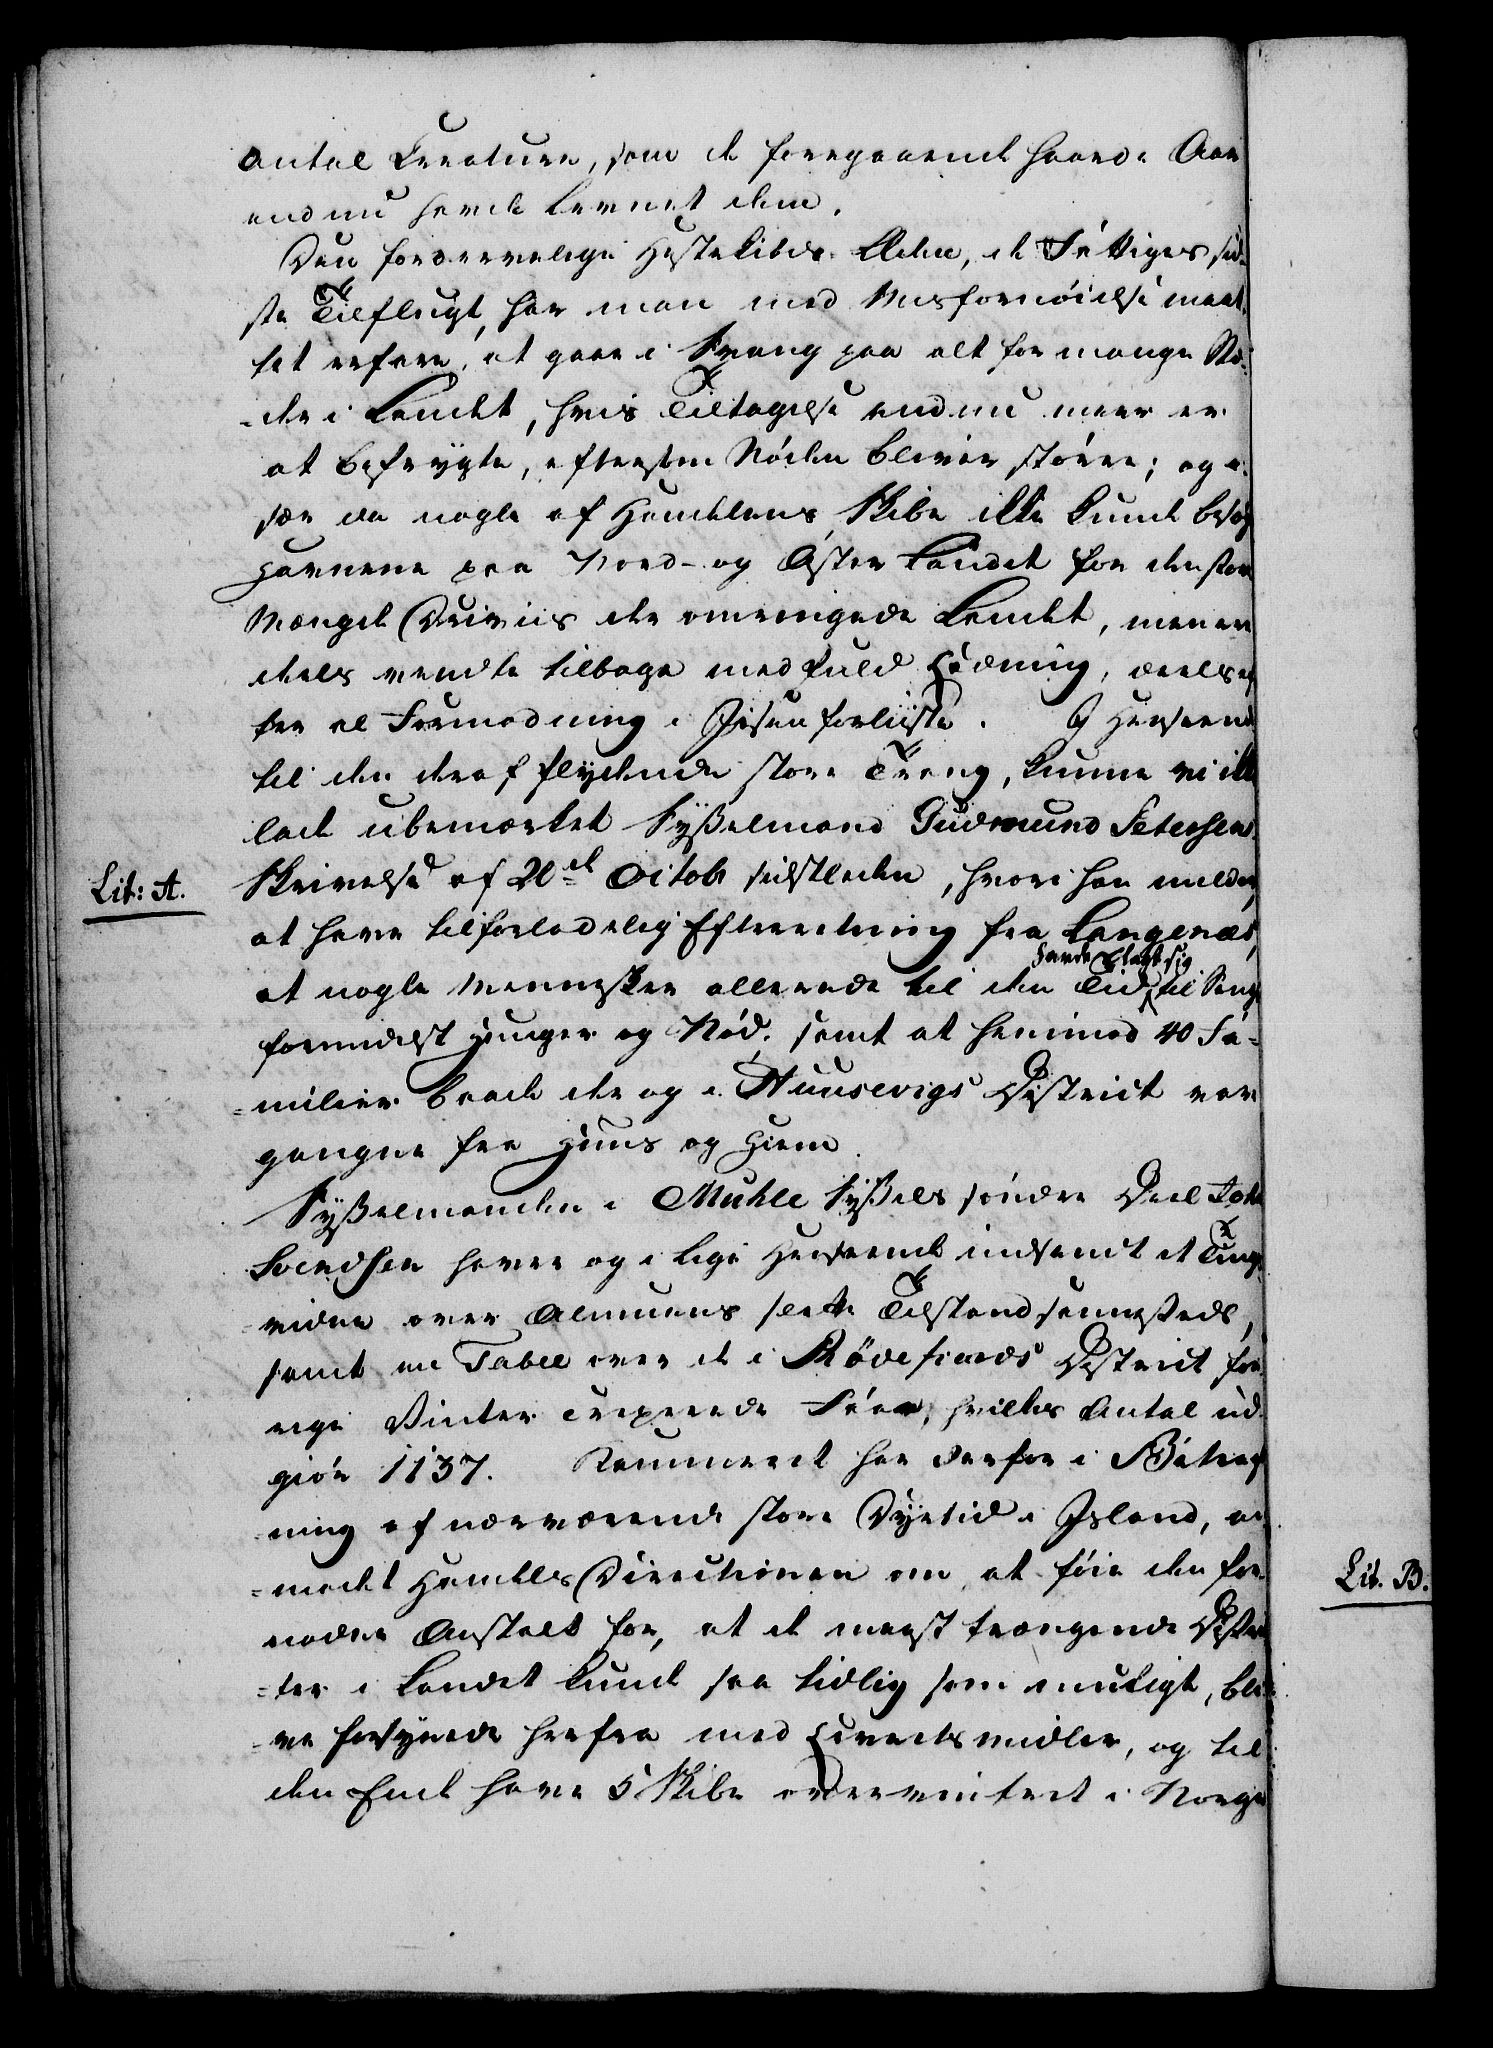 antal Creature, som de foregaaende haarde Aar
endnu havde levnet dem.
Den fordervelige Hestekiøds Æden, de Fattiges sid-
ste Tilflugt, har man med Misfornöielse maat-
tet erfare, at gaae i Svang paa alt for mange Stæ-
-der i Landet, hvis Tiltagelse endnu meer er
at befrygte, eftersom Nöden bliver större; og i-
sær da nogle af Handelens Skibe ikke kunde besøg
Havnene paa Nord- og Öster Landet for den store
Mængde Driviis der omringede Landet, men en
deels vendte tilbage med fuld Ladning, deels ef
ter al Formodning i Jisen forliiste. I Henseende
til den deraf flydende store Trang, kunne vi ikke
lade ubemærket Sysselmand Gudmund Petersens
Lit: A. Skrivelse af 20de Octobr sidstleden, hvori han melder,
at have tilforladelig Efterretning fra Langenæs,
at nogle Mennesker allerede til den Tid havde lagt sig til Sengs
formedelst Hunger og Nød, samt at henimod 40 Fa-
-milier baade der og i Huusevigs District vare
gangne fra Huus og Hiem.
Sysselmanden i Muhle Syssels söndre Deel John
Svendsen haver og i lige Henseende indsendt et Tings-
-vidne over Almuens slette Tilstand sammesteds,
samt en Tabel over de i Rödefiords District for-
rige Vinter creperede Faar, hvilkes Antal ud-
giør 1137. Kammeret har derfor i Betragt
ning af nærværende store Dyrtid i Island, an
-modet Handels Directionen om at föie den for
nødne Anstalt for, at de meest trængende Distric
-ter i Landet kunde saa tidlig som mueligt, bli
-ve forsynede herfra med Levnetsmidler, og til
den Ende have 5 Skibe overvintret i Norge
Lit. B.